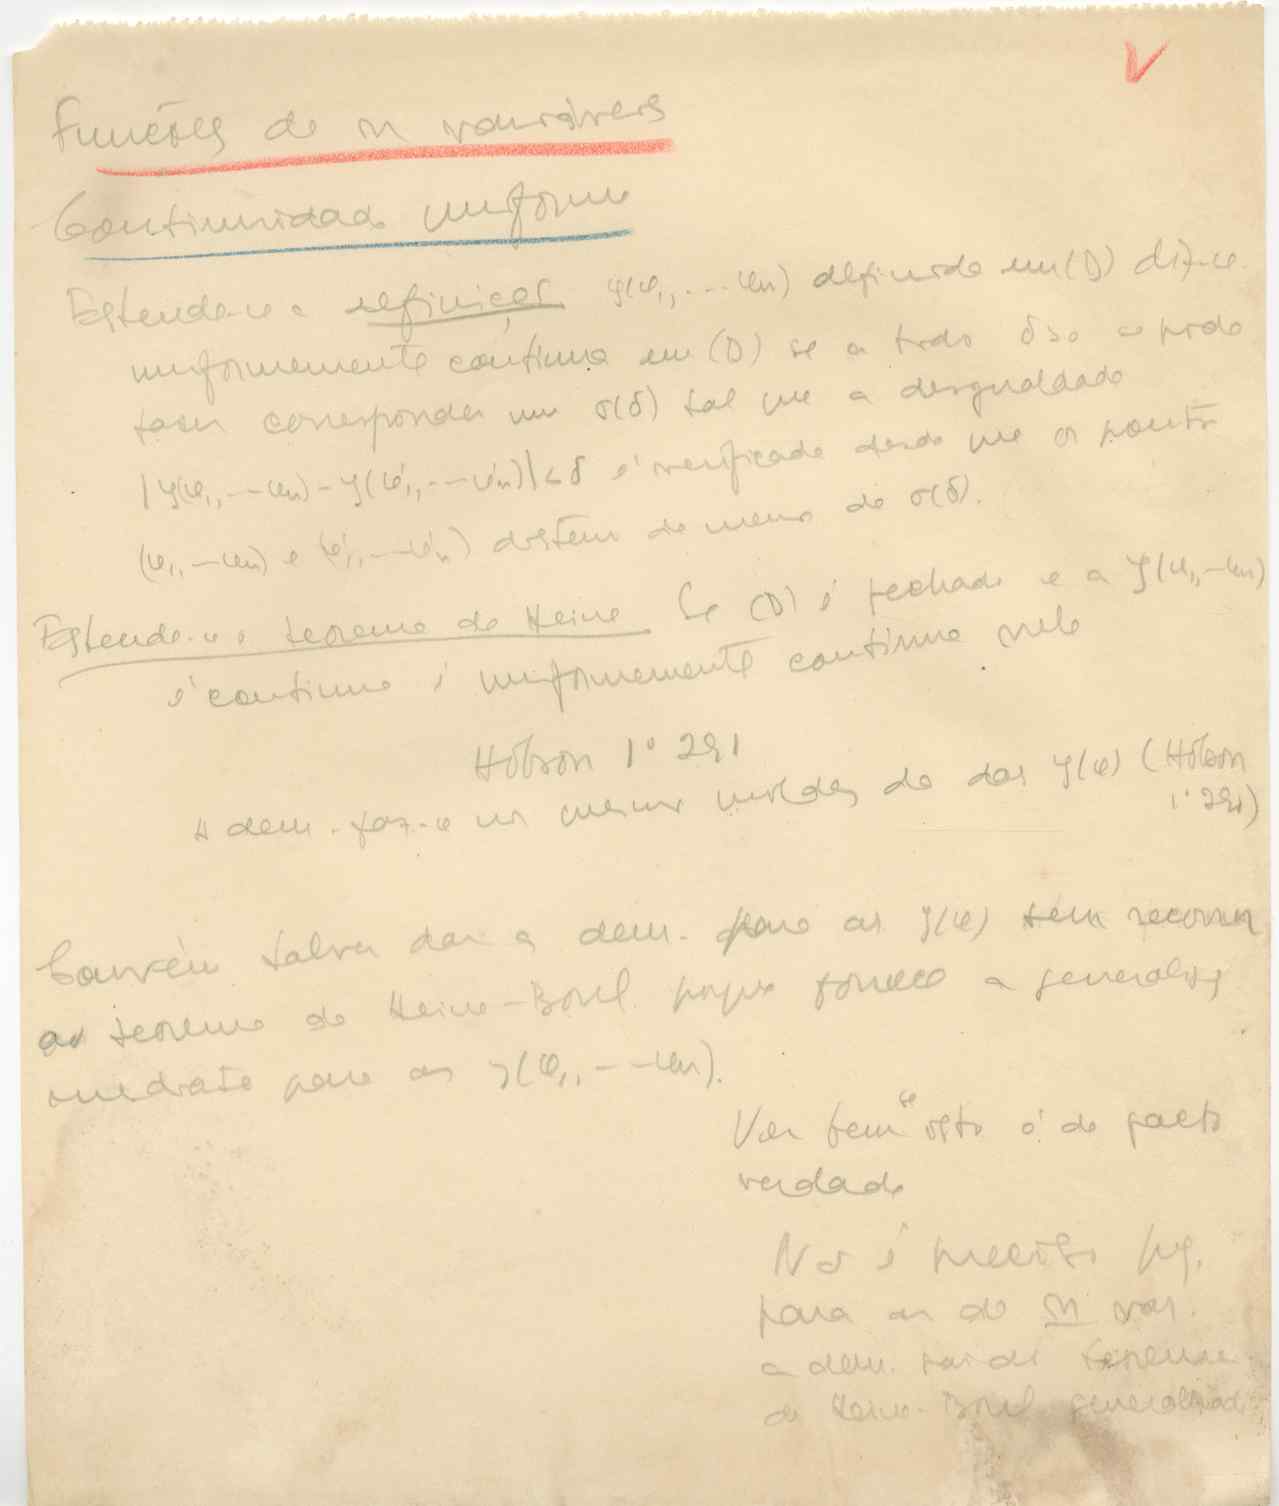 Funções de n variáveis
Continuidade uniforme
Estende-se a definição. y(x₁, ... xn) definida em (D) diz-se
uniformemente contínua em (D) se a todo δ>0 se pode
fazer corresponder um σ(δ) tal que a desigualdade
|y(x₁, --- xn) - y(x'₁, --- x'n)| < δ é verificada desde que os pontos
(x₁, --- xn) e (x'₁, --- x'n) distem de menos de σ(δ).
Estende-se o teorema de Heine Se (D) é fechado e a y(x₁, -- xn)
é contínua é uniformemente contínua nele
Hobson 1º 291
A dem. faz-se nos mesmos moldes do das y(x) (Hobson
1º 291)
Convém talvez dar a dem. para as y(x) sem recorrer
ao teorema de Heine-Borel porque fornece a generaliz.
imediata para as y(x₁, -- xn).
Ver bem se isto é de facto
verdade
Não é preciso pq.
para as de n var.
a dem. sai do teorema
de Heine-Borel generalizado